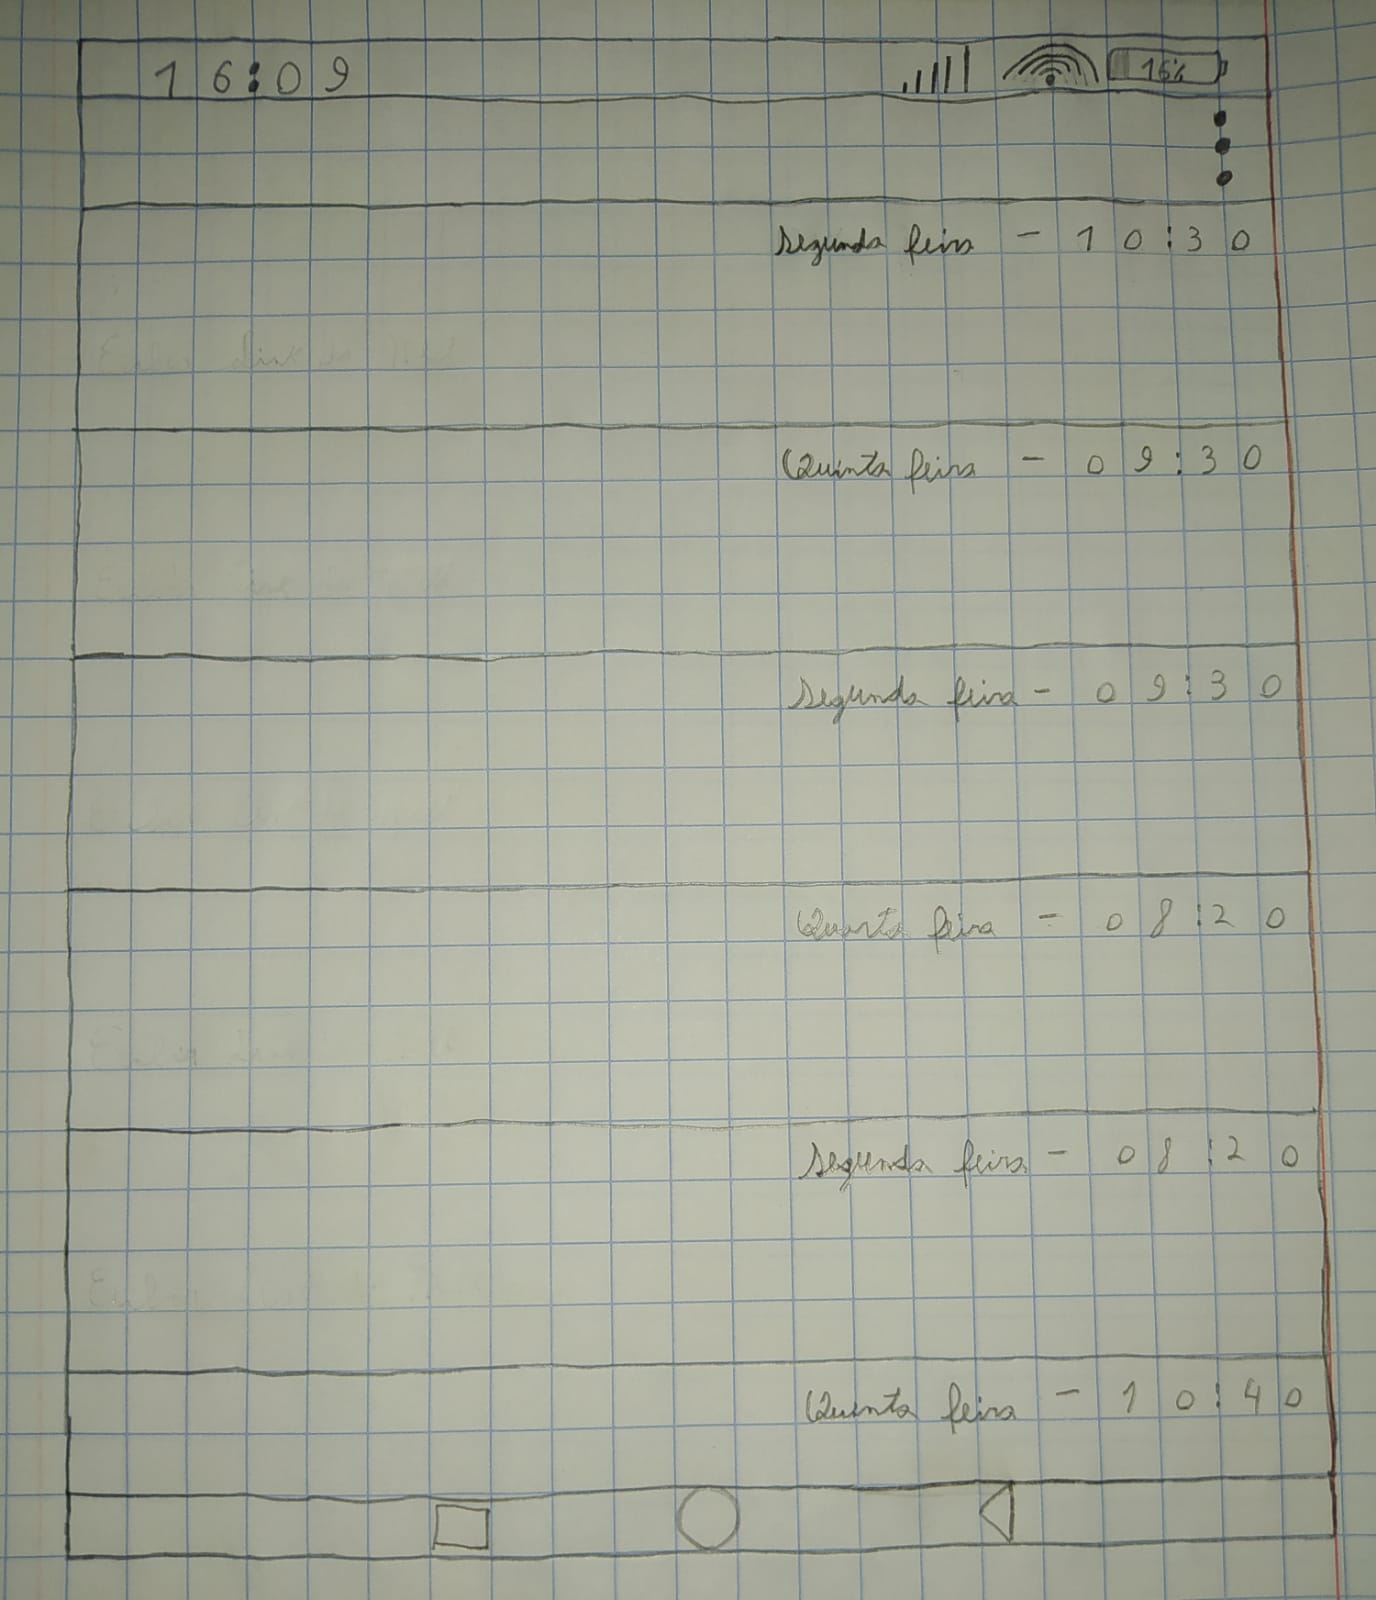 16:09 16%
Segunda feira - 10:30
Quinta feira - 09:30
Segunda feira - 09:30
Quarta feira - 08:20
Segunda feira - 08:20
Quinta feira - 10:40